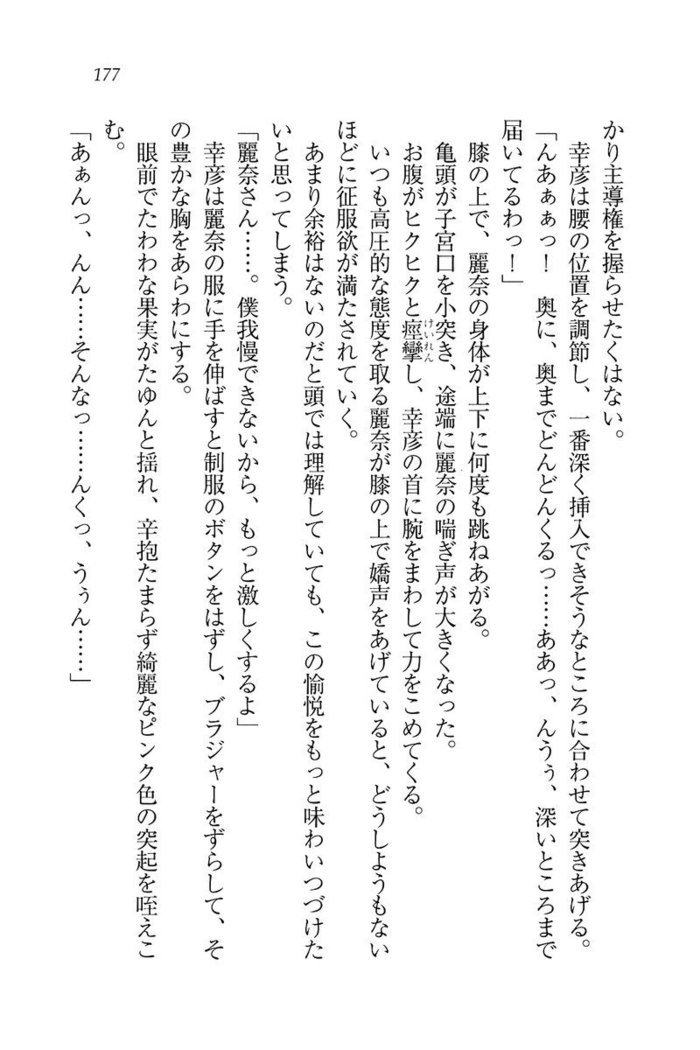 177
かり主導権を握らせたくはない。
幸彦は腰の位置を調節し、一番深く挿入できそうなところに合わせて突きあげる。
「んあぁぁっ！　奥に、奥までどんどんくるっ……ああっ、んうぅ、深いところまで
届いてるわっ！」
膝の上で、麗奈の身体が上下に何度も跳ねあがる。
亀頭が子宮口を小突き、途端に麗奈の喘ぎ声が大きくなった。
お腹がヒクヒクと痙攣けいれんし、幸彦の首に腕をまわして力をこめてくる。
いつも高圧的な態度を取る麗奈が膝の上で嬌声をあげていると、どうしようもない
ほどに征服欲が満たされていく。
あまり余裕はないのだと頭では理解していても、この愉悦をもっと味わいつづけた
いと思ってしまう。
「麗奈さん……。僕我慢できないから、もっと激しくするよ」
幸彦は麗奈の服に手を伸ばすと制服のボタンをはずし、ブラジャーをずらして、そ
の豊かな胸をあらわにする。
眼前でたわわな果実がたゆんと揺れ、辛抱たまらず綺麗なピンク色の突起を咥えこ
む。
「あぁんっ、んん……そんなっ……んくっ、うぅん……」